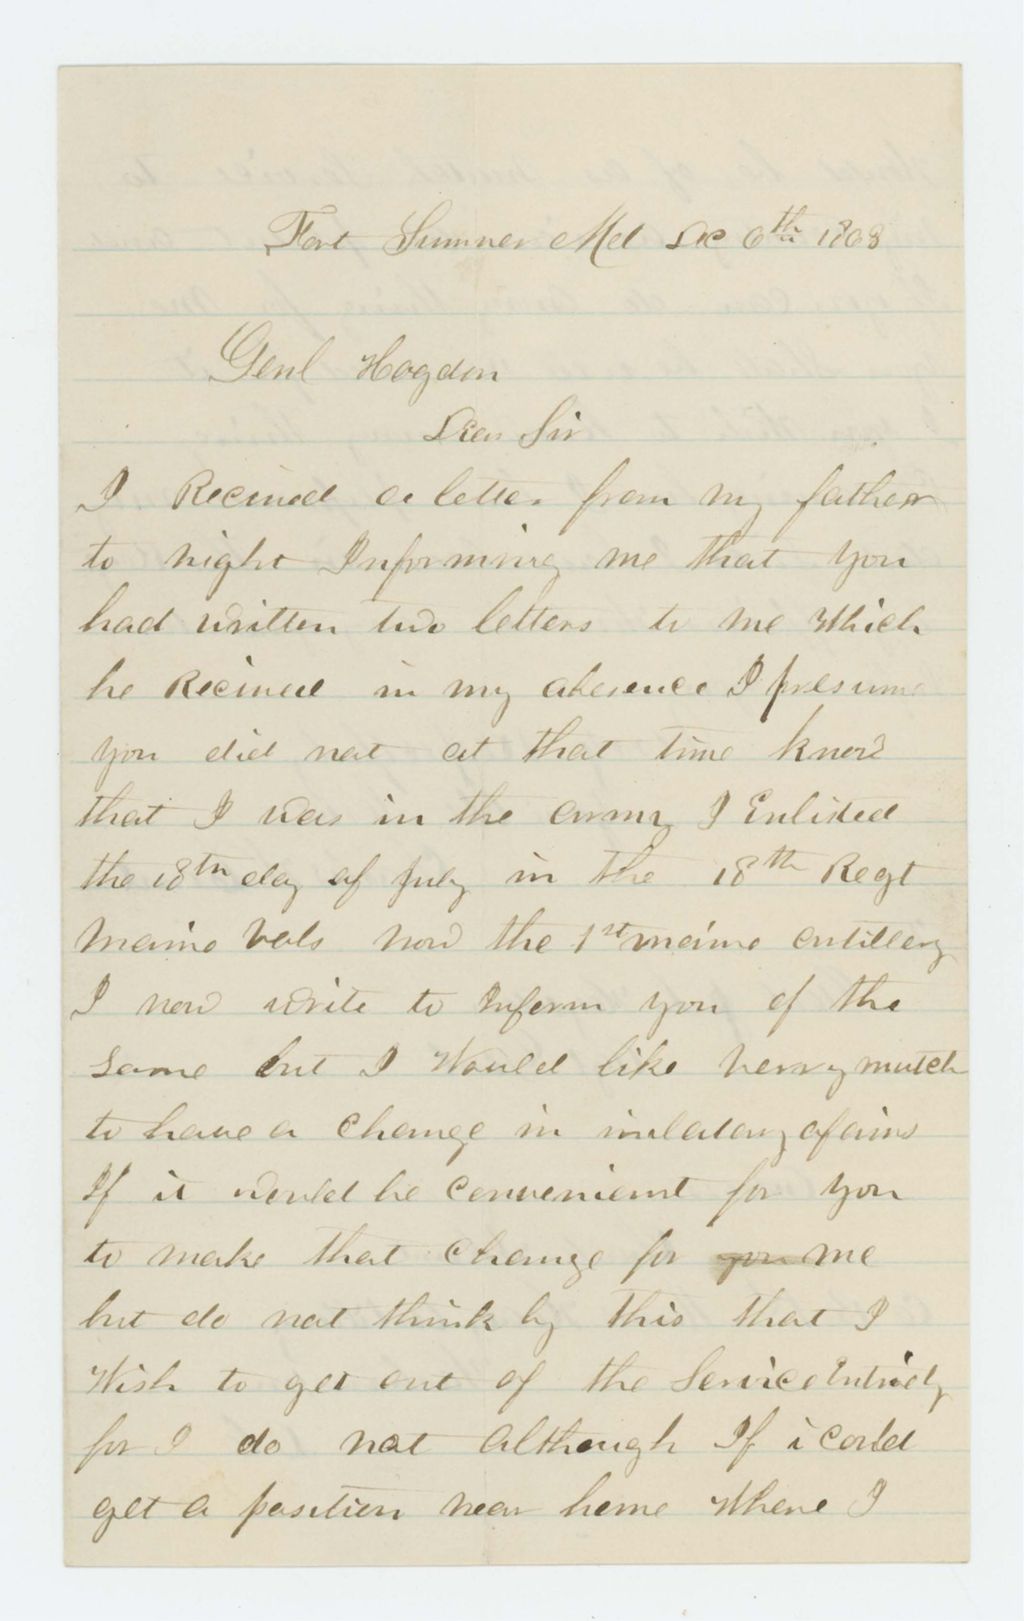 Fort Sumner Md Dec 6th 1863
Genl Hogdon
Dear Sir
I Recived a letter from my father
to night Informing me that you
had written two letters to me Which
he Recived in my absence I presume
you did not at that time know
that I was in the army I Enlisted
the 18th day of July in the 18th Regt
Maine Vols now the 1st maine artillery
I now write to Inform you of the
same but I Would like verry mutch
to have a Change in milatary afairs
If it would be Convenient for you
to make that Change for you me
but do not think by this that I
Wish to get out of the Service Entirely
for I do not Although If i Could
get a position near home Where I